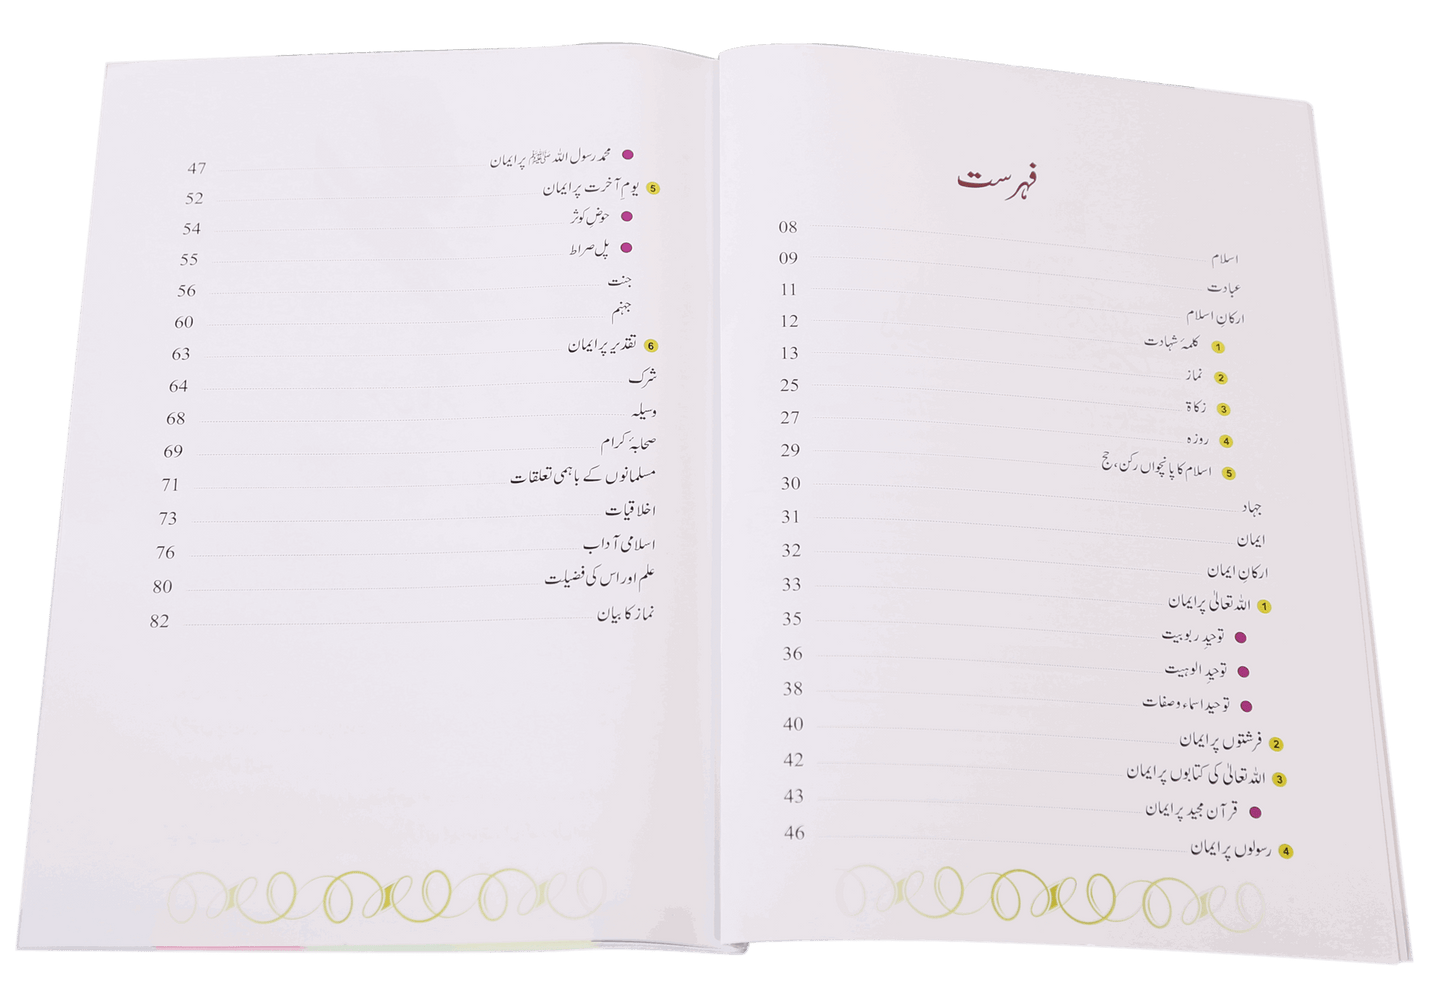 فہرست
اسلام 08
عبادت 09
ارکانِ اسلام 11
1 کلمۂ شہادت 12
2 نماز 13
3 زکاۃ 25
4 روزہ 27
5 اسلام کا پانچواں رکن، حج 29
جہاد 30
ایمان 31
ارکانِ ایمان 32
1 اللہ تعالیٰ پر ایمان 33
● توحیدِ ربوبیت 35
● توحیدِ الوہیت 36
● توحید اسماء وصفات 38
2 فرشتوں پر ایمان 40
3 اللہ تعالیٰ کی کتابوں پر ایمان 42
● قرآن مجید پر ایمان 43
4 رسولوں پر ایمان 46
● محمد رسول اللہ ﷺ پر ایمان 47
5 یومِ آخرت پر ایمان 52
● حوضِ کوثر 54
● پل صراط 55
جنت 56
جہنم 60
6 تقدیر پر ایمان 63
شرک 64
وسیلہ 68
صحابۂ کرام 69
مسلمانوں کے باہمی تعلقات 71
اخلاقیات 73
اسلامی آداب 76
علم اور اس کی فضیلت 80
نماز کا بیان 82